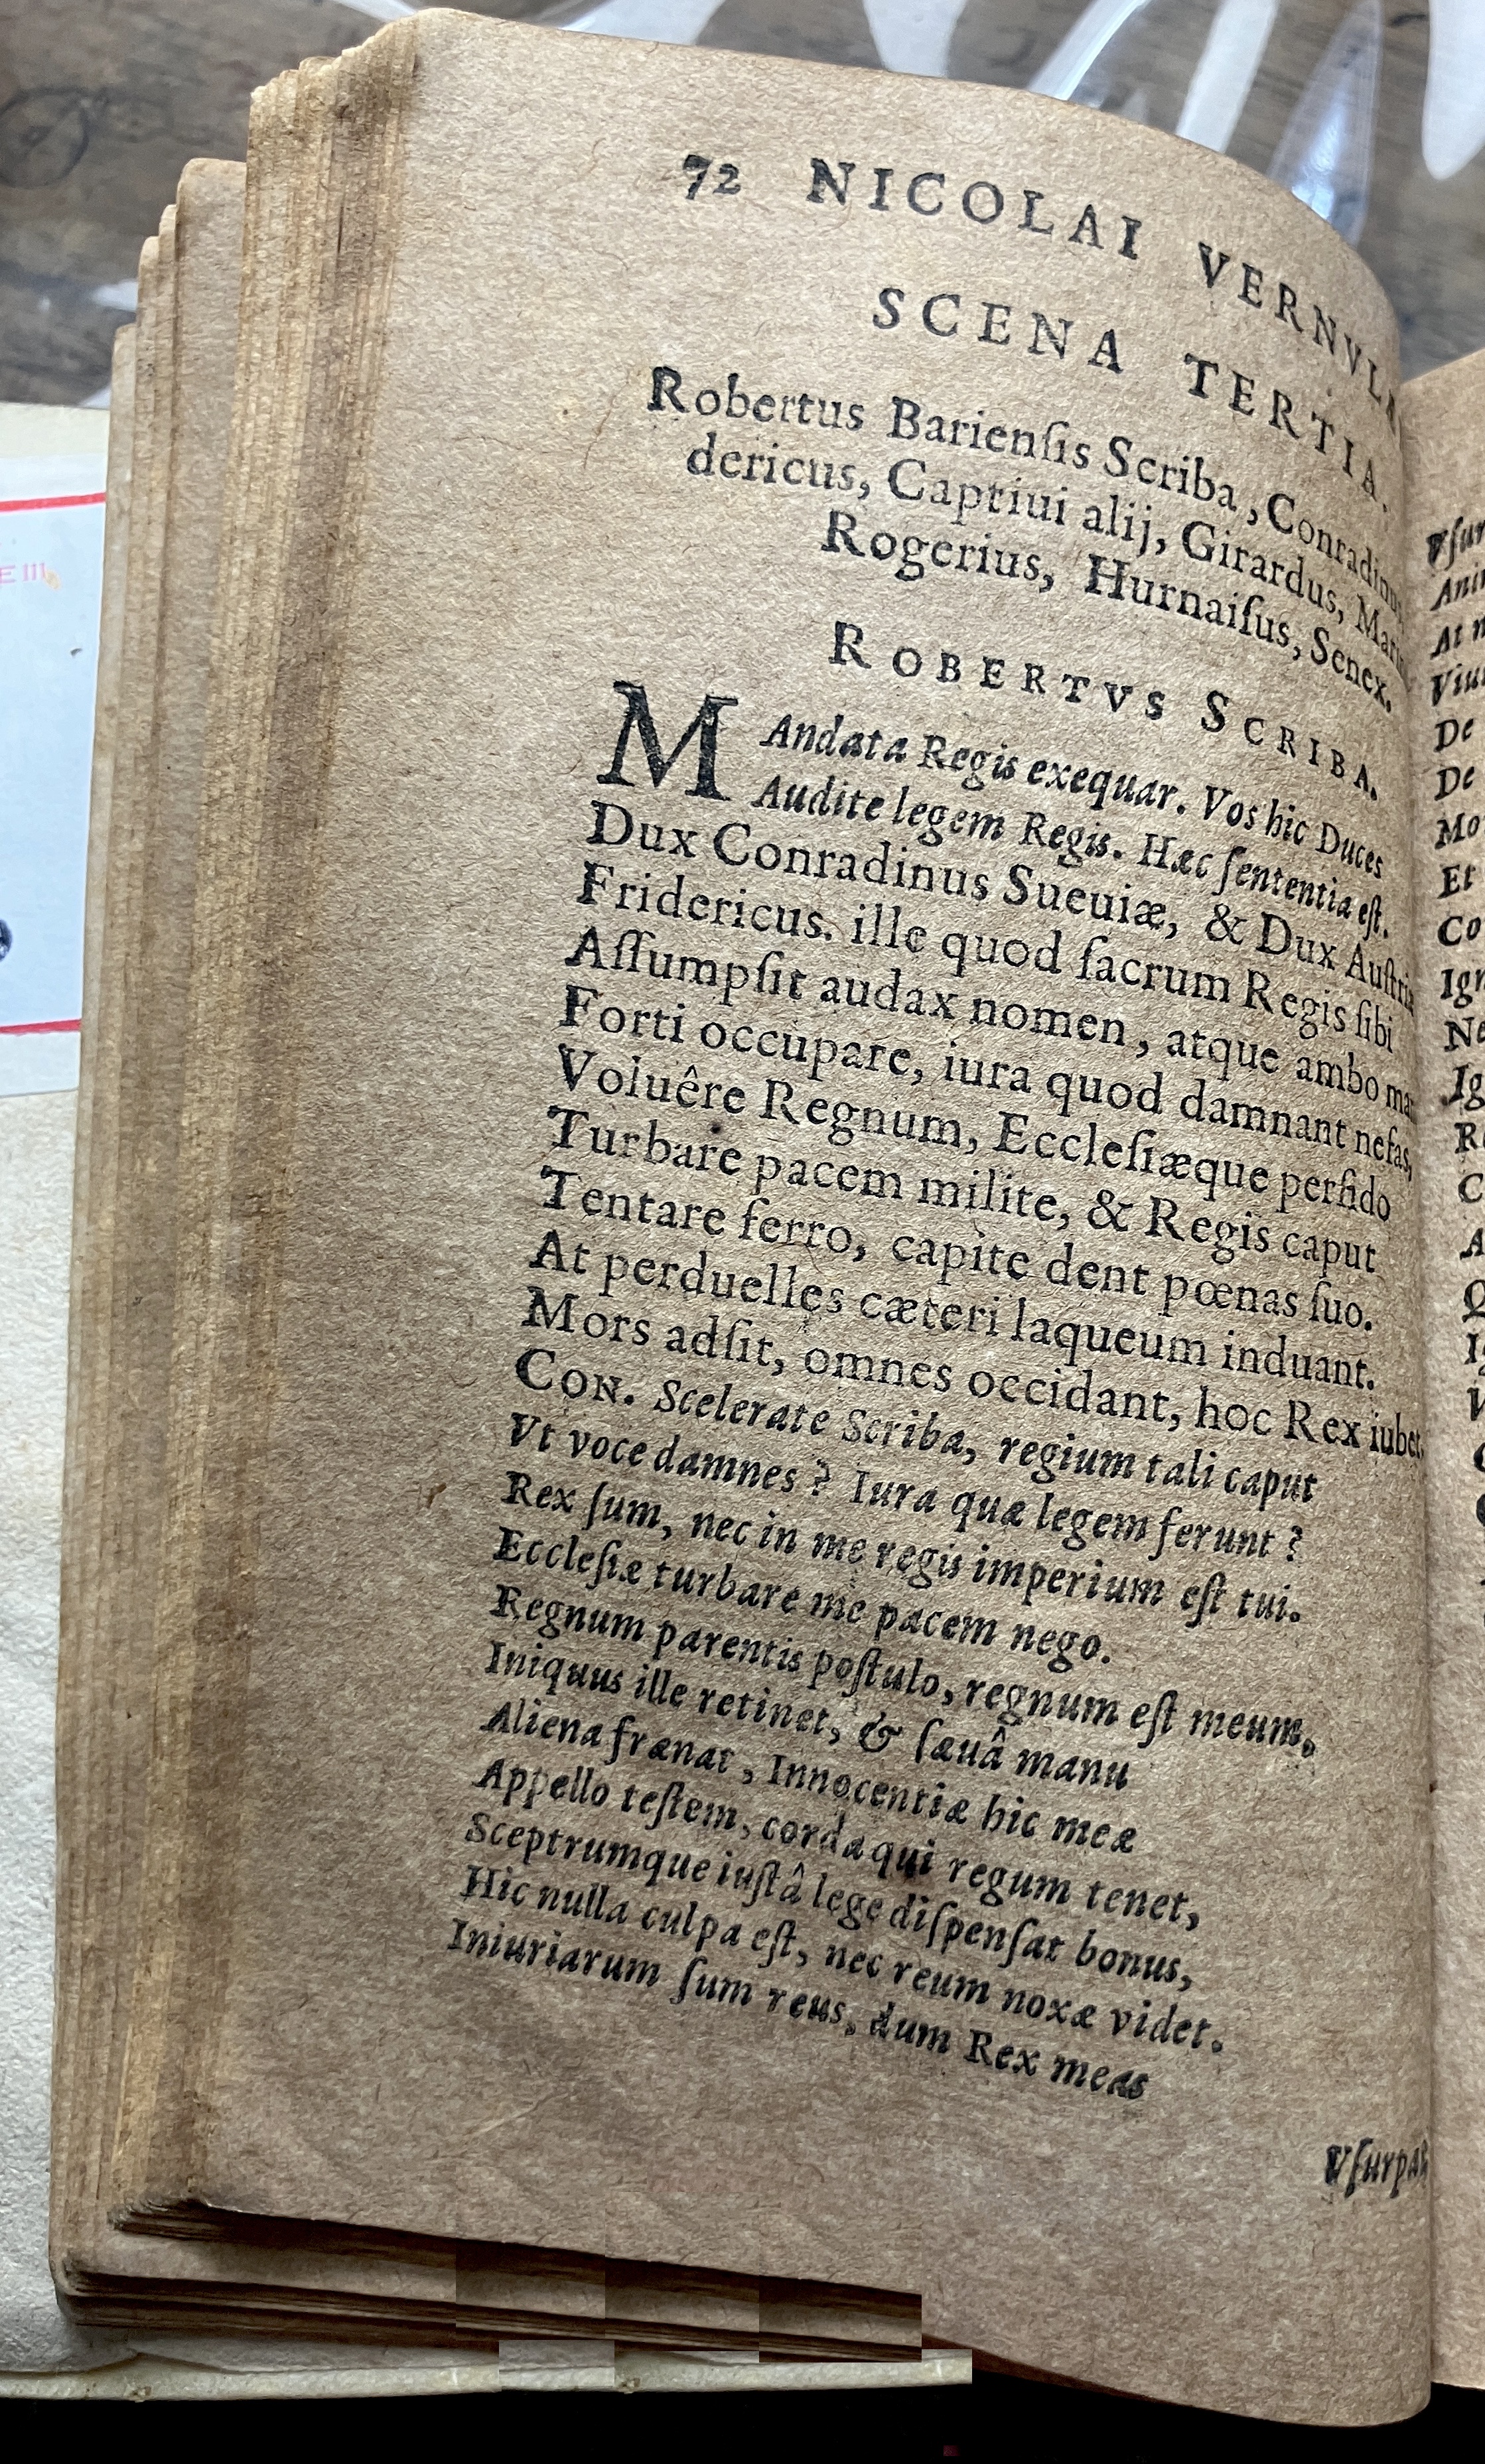 72 NICOLAI VERNVLÆ
SCENA TERTIA.
Robertus Barienſis Scriba, Conradinus,
dericus, Captiui alij, Girardus,
Rogerius, Hurnaiſus, Senex.
ROBERTVS SCRIBA.
MAndata Regis exequar. Vos hic Duces
Audite legem Regis. Hæc ſententia eſt.
Dux Conradinus Sueuiæ, & Dux Auſtriæ
Fridericus. ille quod ſacrum Regis ſibi
Aſſumpſit audax nomen, atque ambo
Forti occupare, iura quod damnant nefas,
Voluêre Regnum, Eccleſiæque perfido
Turbare pacem milite, & Regis caput
Tentare ferro, capite dent pœnas ſuo.
At perduelles cæteri laqueum induant.
Mors adſit, omnes occidant, hoc Rex iubet.
CON. Scelerate Scriba, regium tali caput
Vt voce damnes? Iura quæ legem ferunt?
Rex ſum, nec in me regis imperium eſt tui.
Eccleſiæ turbare me pacem nego.
Regnum parentis poſtulo, regnum eſt meum,
Iniquus ille retinet, & ſæuâ manu
Aliena frænat, Innocentiæ hic meæ
Appello teſtem, corda qui regum tenet,
Sceptrumque iuſtâ lege diſpenſat bonus,
Hic nulla culpa eſt, nec reum noxæ videt.
Iniuriarum ſum reus, dum Rex meas
Vſurpat
At
De
De
Et
E III